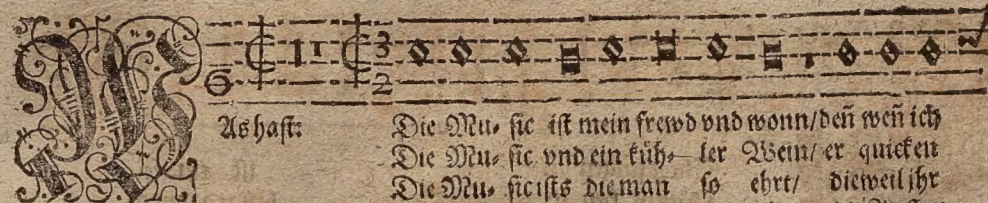 WAs hast: Die Mu- sic ist mein frewd vnd wonn/ deñ weñ ich
Die Mu- sic vnd ein küh- ler Wein/ er quicken
Die Mu- sic ists die man so ehrt/ dieweil jhr